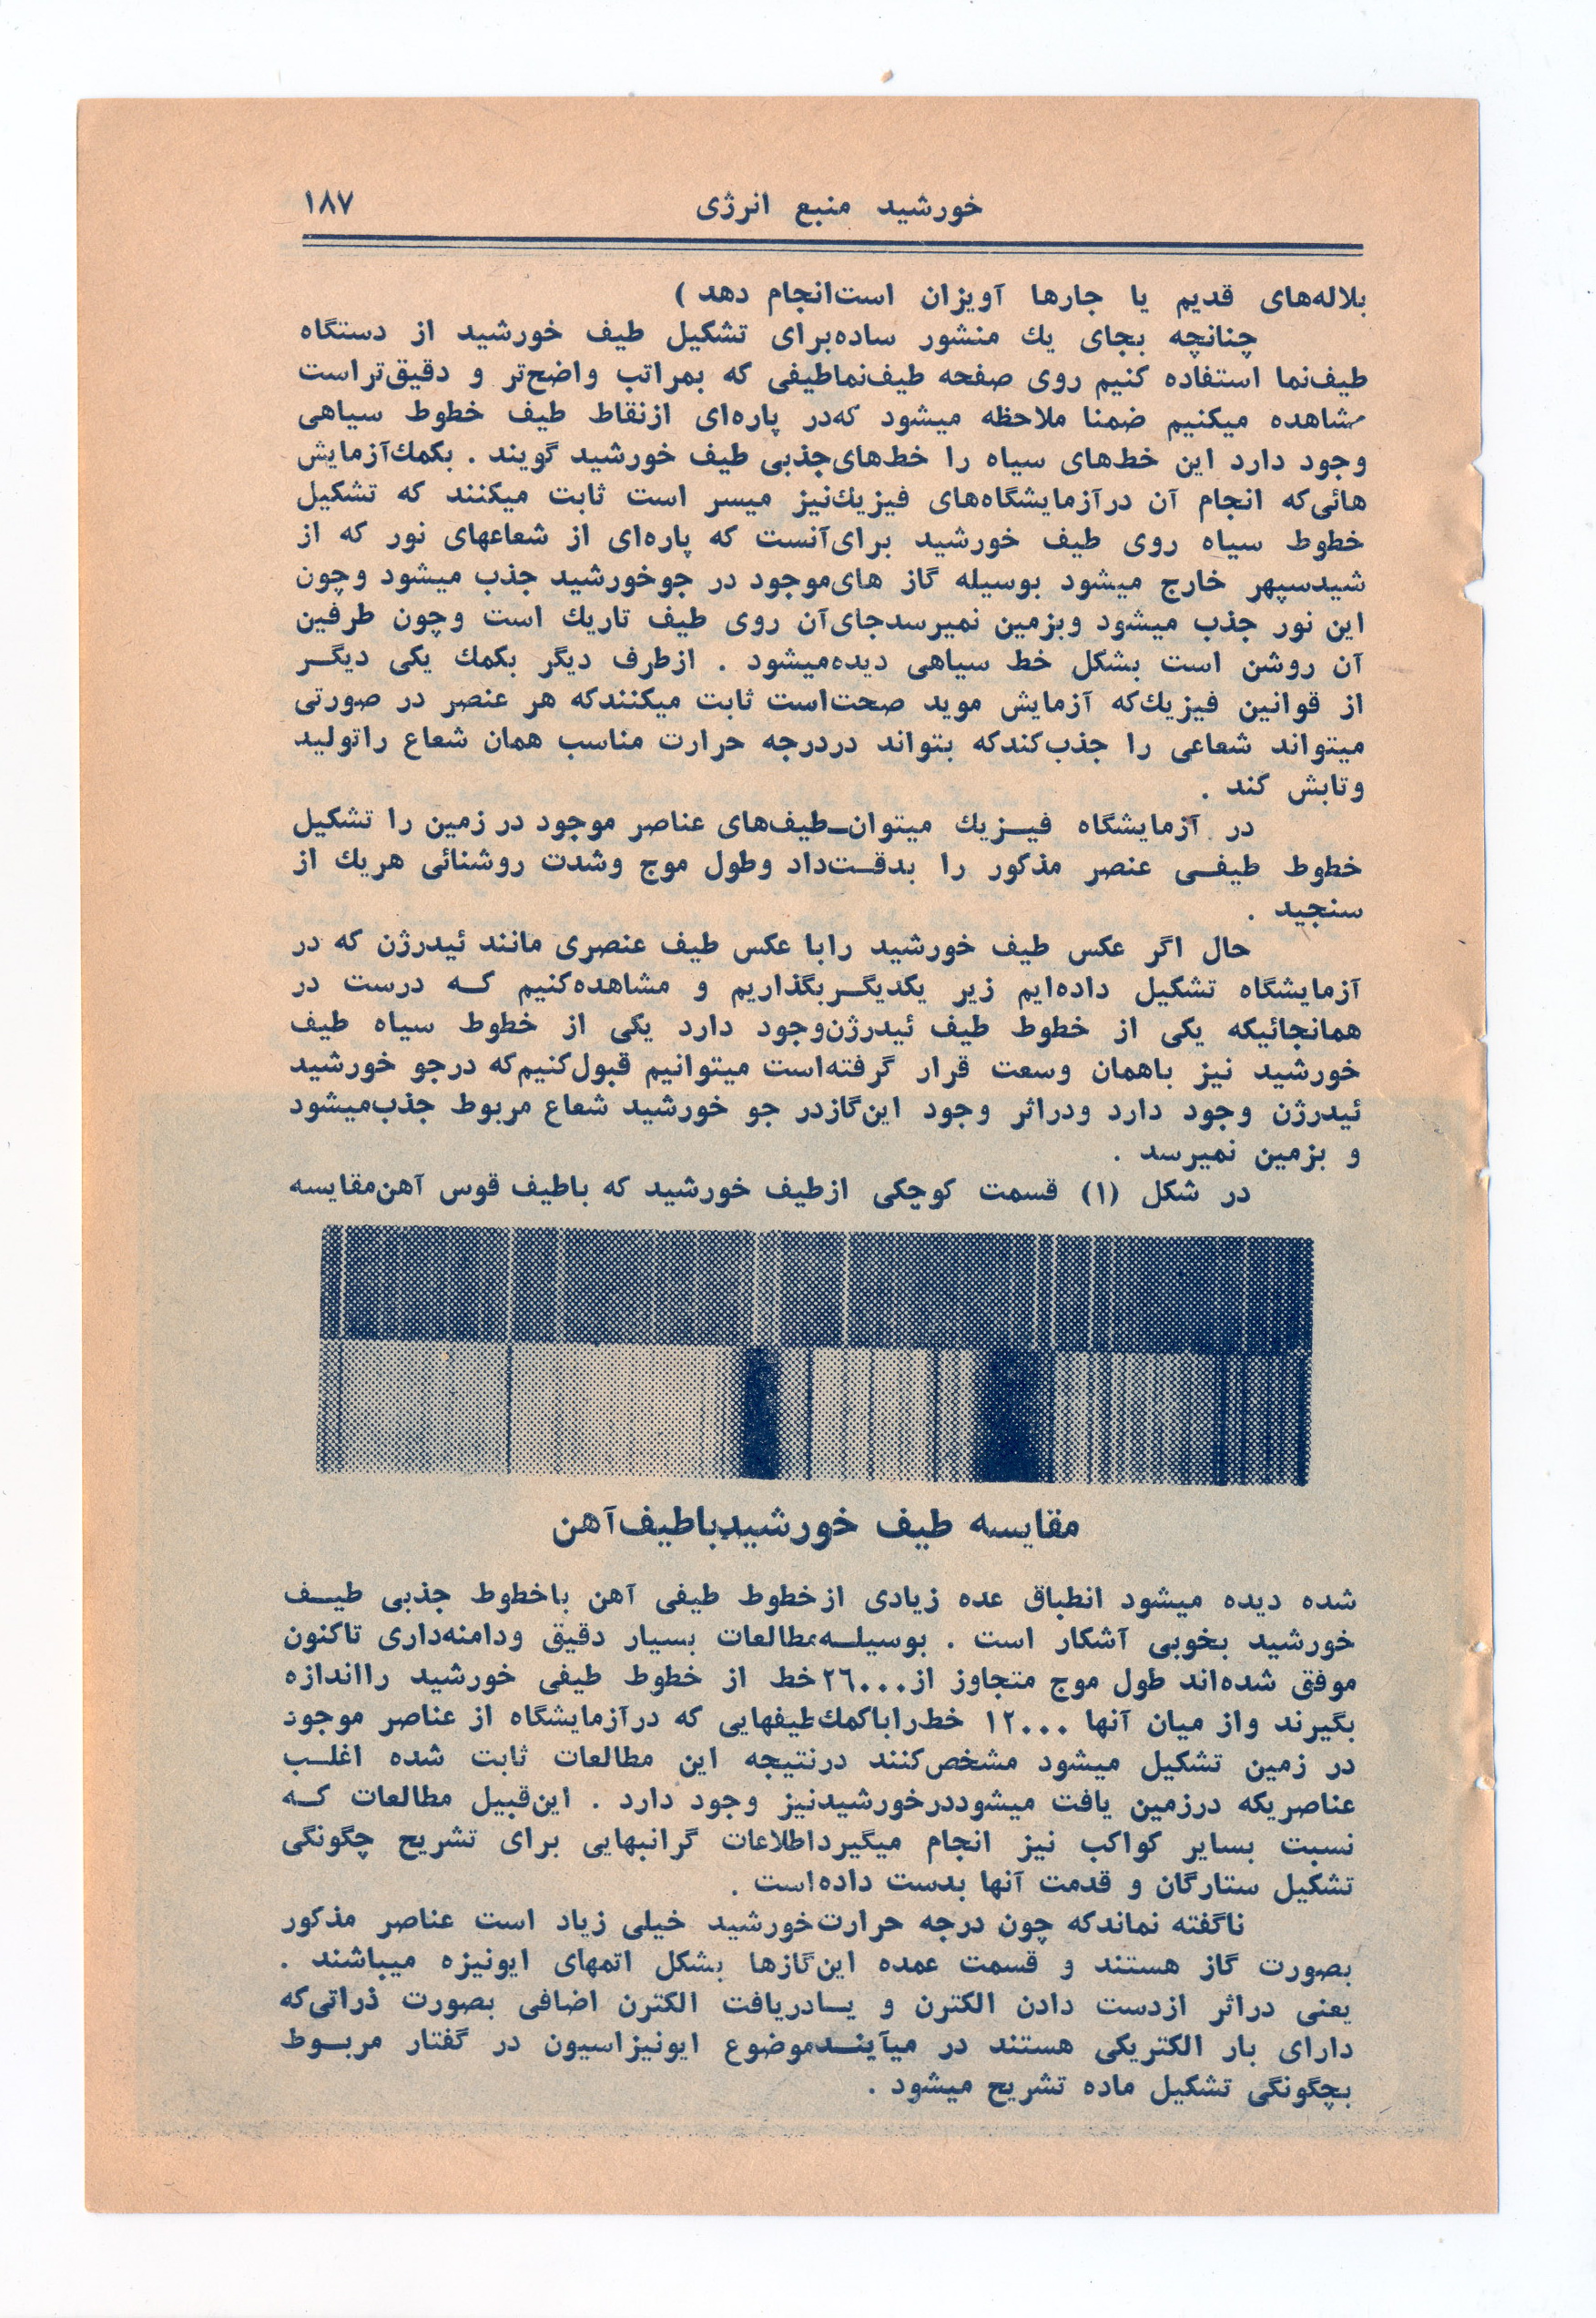 خورشید منبع انرژی ۱۸۷
بلاله‌های قدیم یا جارها آویزان است‌انجام دهد )
چنانچه بجای یك منشور ساده‌برای تشکیل طیف خورشید از دستگاه
طیف‌نما استفاده کنیم روی صفحه طیف‌نماطیفی که بمراتب واضح‌تر و دقیق‌تراست
مشاهده میکنیم ضمنا ملاحظه میشود که‌در پاره‌ای ازنقاط طیف خطوط سیاهی
وجود دارد این خط‌های سیاه را خط‌های‌جذبی طیف خورشید گویند . بکمك‌آزمایش
هائی‌که انجام آن درآزمایشگاه‌های فیزیك‌نیز میسر است ثابت میکنند که تشکیل
خطوط سیاه روی طیف خورشید برای‌آنست که پاره‌ای از شعاعهای نور که از
شیدسپهر خارج میشود بوسیله گاز های‌موجود در جوخورشید جذب میشود وچون
این نور جذب میشود وبزمین نمیرسدجای‌آن روی طیف تاریك است وچون طرفین
آن روشن است بشکل خط سیاهی دیده‌میشود . ازطرف دیگر بکمك یکی دیگـر
از قوانین فیزیك‌که آزمایش موید صحت‌است ثابت میکنندکه هر عنصر در صورتی
میتواند شعاعی را جذب‌کندکه بتواند دردرجه حرارت مناسب همان شعاع راتولید
وتابش کند .
در آزمایشگاه فیـزیك میتوان‌ـطیف‌های عناصر موجود در زمین را تشکیل
خطوط طیفـی عنصر مذکور را بدقـت‌داد وطول موج وشدت روشنائی هریك از
سنجید .
حال اگر عکس طیف خورشید رابا عکس طیف عنصری مانند ئیدرژن که در
آزمایشگاه تشکیل داده‌ایم زیر یکدیگـربگذاریم و مشاهده‌کنیم کـه درست در
همانجائیکه یکی از خطوط طیف ئیدرژن‌وجود دارد یکی از خطوط سیاه طیف
خورشید نیز باهمان وسعت قرار گرفته‌است میتوانیم قبول‌کنیم‌که درجو خورشید
ئیدرژن وجود دارد ودراثر وجود این‌گازدر جو خورشید شعاع مربوط جذب‌میشود
و بزمین نمیرسد .
در شکل (۱) قسمت کوچکی ازطیف خورشید که باطیف قوس آهن‌مقایسه
مقایسه طیف خورشیدباطیف‌آهن
شده دیده میشود انطباق عده زیادی ازخطوط طیفی آهن باخطوط جذبی طیـف
خورشید بخوبی آشکار است . بوسیلـه‌مطالعات بسیار دقیق ودامنه‌داری تاکنون
موفق شده‌اند طول موج متجاوز از۲٦۰۰۰خط از خطوط طیفی خورشید رااندازه
بگیرند واز میان آنها ۱۲۰۰۰ خط‌راباکمك‌طیفهایی که درآزمایشگاه از عناصر موجود
در زمین تشکیل میشود مشخص‌کنند درنتیجه این مطالعات ثابت شده اغلـب
عناصریکه درزمین یافت میشوددرخورشیدنیز وجود دارد . این‌قبیل مطالعات کـه
نسبت بسایر کواکب نیز انجام میگیرداطلاعات گرانبهایی برای تشریح چگونگی
تشکیل ستارگان و قدمت آنها بدست داده‌است .
ناگفته نماندکه چون درجه حرارت‌خورشید خیلی زیاد است عناصر مذکور
بصورت گاز هستند و قسمت عمده این‌گازها بشکل اتمهای ایونیزه میباشند .
یعنی دراثر ازدست دادن الکترن و یـادریافت الکترن اضافی بصورت ذراتی‌که
دارای بار الکتریکی هستند در میآینـدموضوع ایونیزاسیون در گفتار مربـوط
بچگونگی تشکیل ماده تشریح میشود .